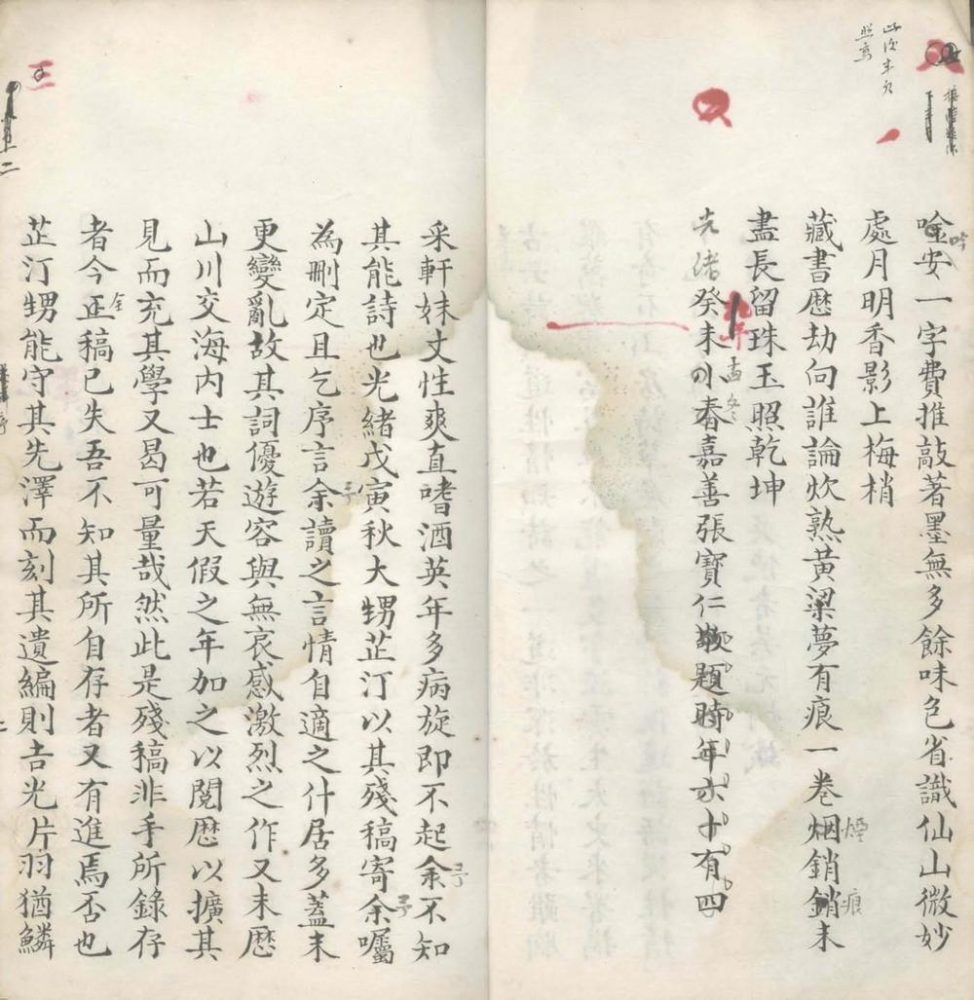 唫安一字費推敲著墨無多餘味包省識仙山微妙
吟
處月明香影上梅梢
藏書歷劫向誰論炊熟黃粱夢有痕一卷烟銷銷未
煙
痕
盡長留珠玉照乾坤
光緒癸未小春嘉善張寶仁敬題時年六十有四
九年
孟冬
采軒妹丈性爽直嗜酒英年多病旋即不起余不知
予
其能詩也光緒戊寅秋大甥芷汀以其殘稿寄余囑
予
為刪定且乞序言余讀之言情自適之什居多蓋未
予
更變亂故其詞優遊容與無哀感激烈之作又未歷
山川交海內士也若天假之年加之以閱歷以擴其
見而充其學又曷可量哉然此是殘稿非手所錄存
者今正稿已失吾不知其所自存者又有進焉否也
全
芷汀甥能守其先澤而刻其遺編則吉光片羽猶鱗
三
二